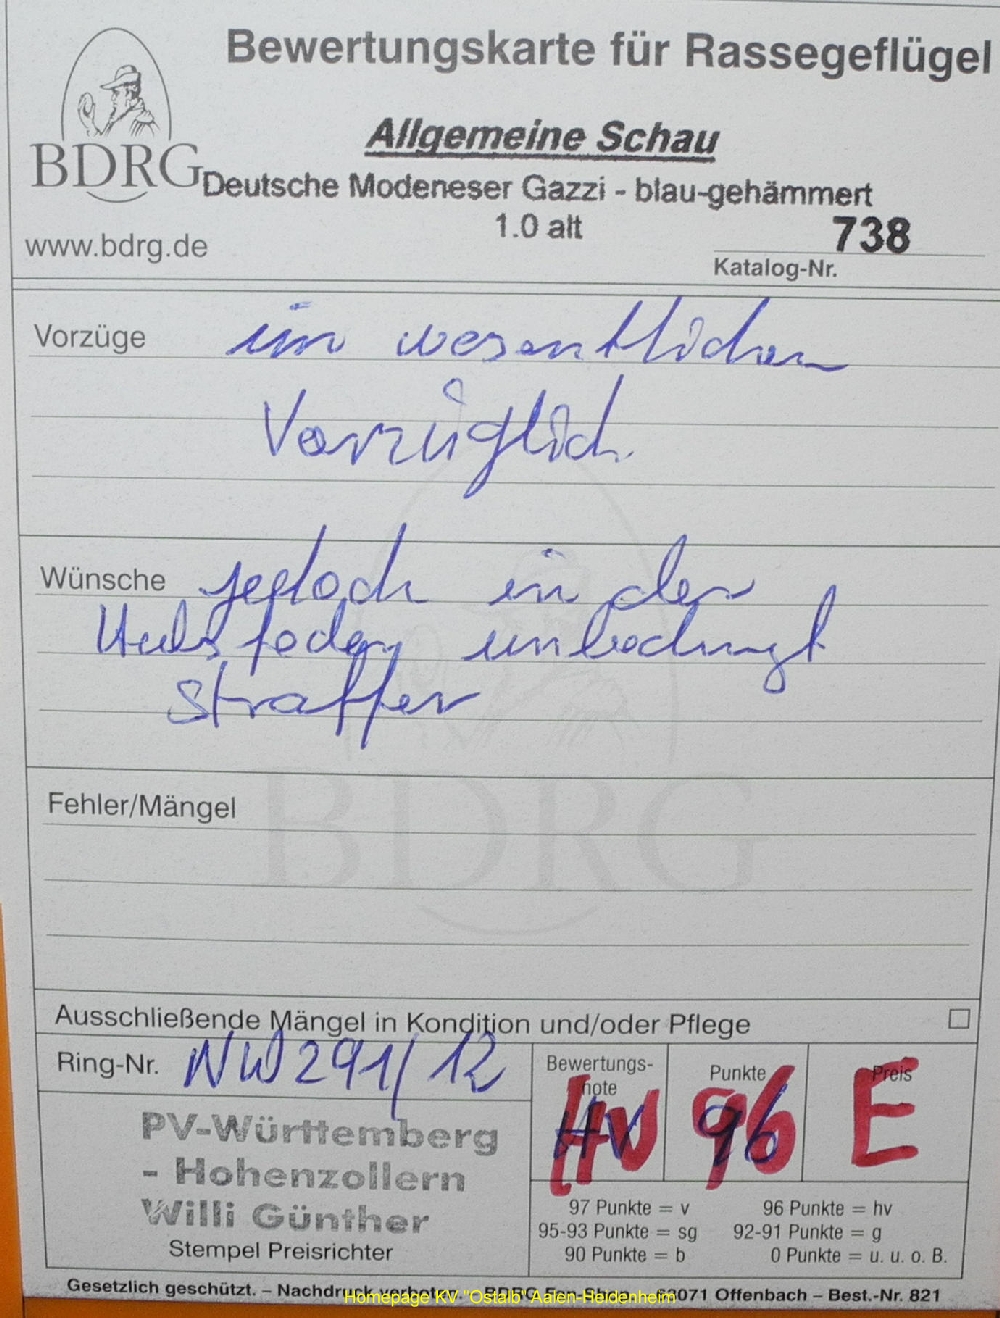 Bewertungskarte für Rassegeflügel
BDRG
Allgemeine Schau
Deutsche Modeneser Gazzi - blau-gehämmert
1.0 alt
738
www.bdrg.de
Katalog-Nr.
Vorzüge im wesentlichen
Vorzüglich.
Wünsche jedoch in der
Halsfeder unbedingt
straffer
BDRG
Fehler/Mängel
Ausschließende Mängel in Kondition und/oder Pflege
Ring-Nr. NW 291/12
Bewertungs-
note
HV
Punkte
96
Preis
E
PV-Württemberg
- Hohenzollern
Willi Günther
Stempel Preisrichter
97 Punkte = v 96 Punkte = hv
95-93 Punkte = sg 92-91 Punkte = g
90 Punkte = b 0 Punkte = u. u. o. B.
Gesetzlich geschützt. – 071 Offenbach – Best.-Nr. 821
Homepage KV "Ostalb" Aalen-Heidenheim